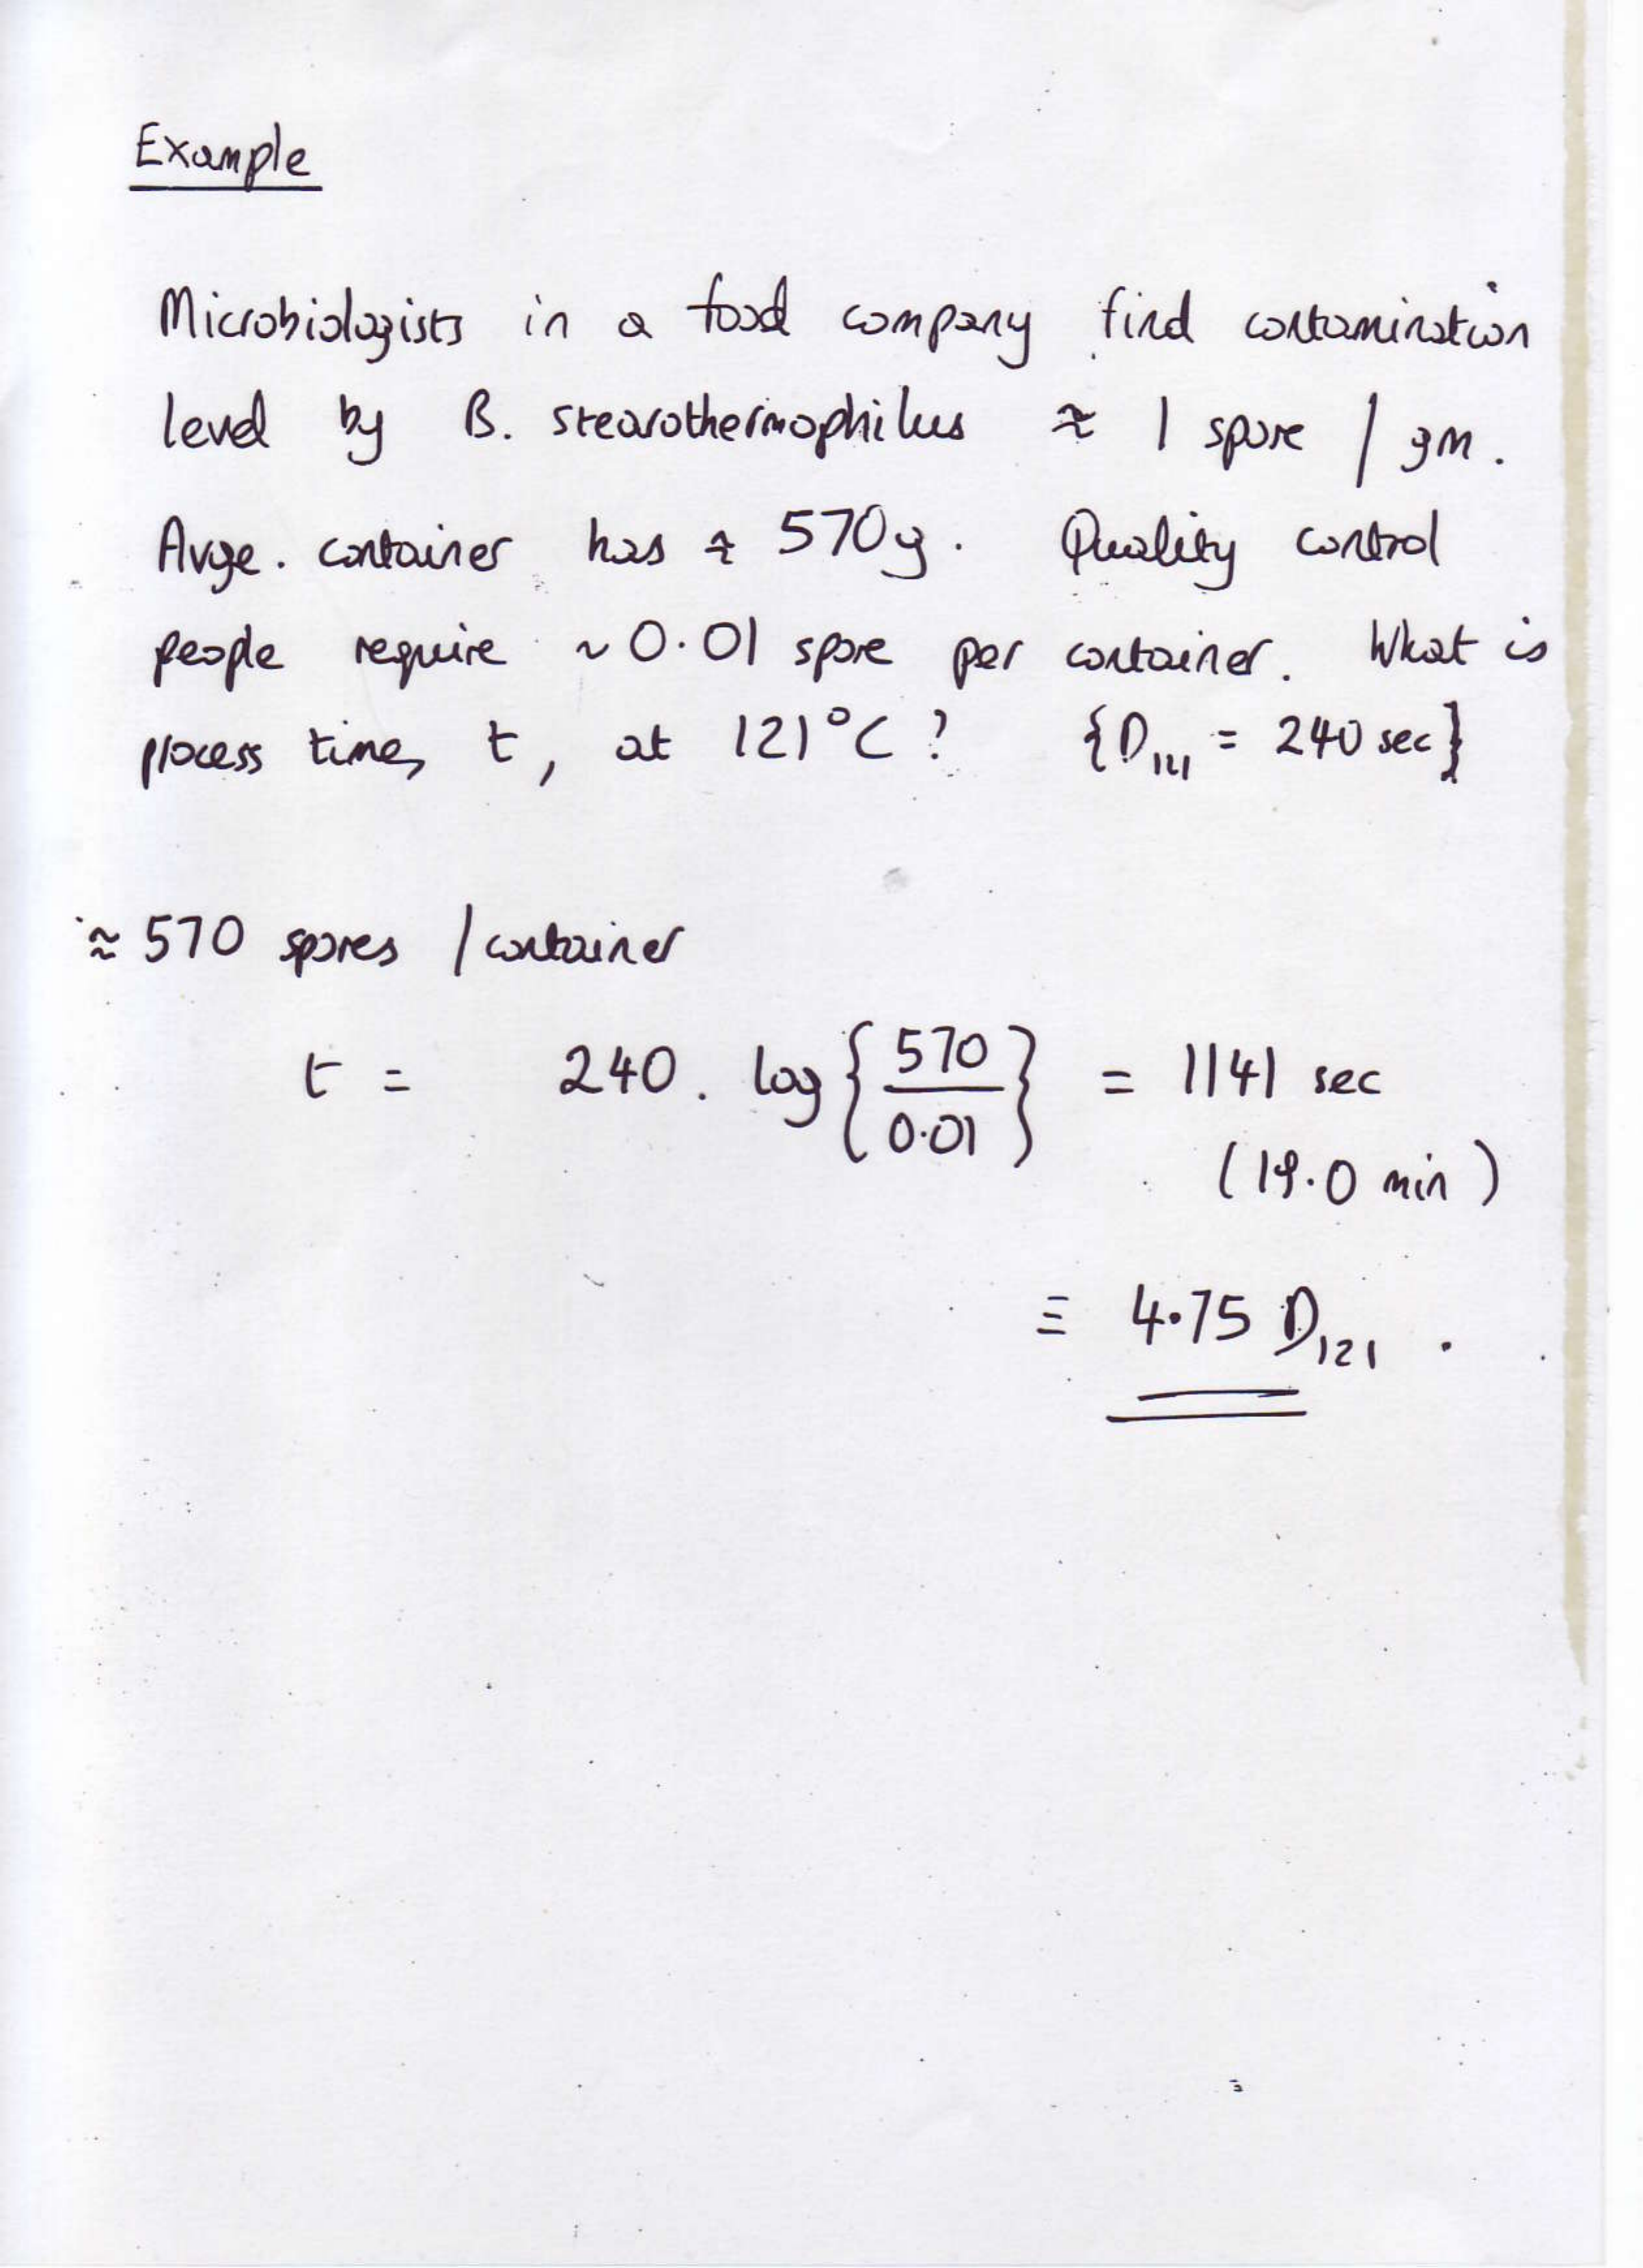 Example
Microbiologists in a food company find contamination
level by B. stearothermophilus ≈ 1 spore / gm.
Avge. container has ≈ 570g. Quality control
people require ~ 0.01 spore per container. What is
process time, t, at 121°C? {D₁₂₁ = 240 sec}
≈ 570 spores / container
t = 240 . log{570/0.01} = 1141 sec
(19.0 min)
≡ 4.75 D₁₂₁ .